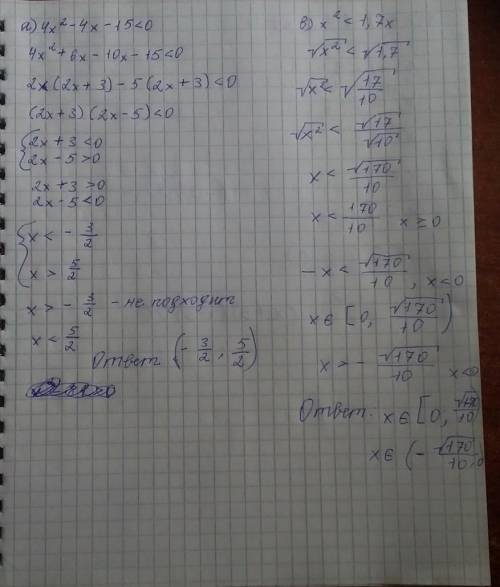 а) 4x² - 4x - 15 < 0
4x² + 6x - 10x - 15 < 0
2x (2x + 3) - 5 (2x + 3) < 0
(2x + 3) (2x - 5) < 0
2x + 3 < 0
2x - 5 > 0
2x + 3 > 0
2x - 5 < 0
x < - 3/2
x > 5/2
x > - 3/2 - не подходит
x < 5/2
Ответ (- 3/2, 5/2)
в) x² < 1,7x
√x² < √1,7
√x² < √17/10
√x² < √17/√10
x < √170/10
x < 170/10 x ≥ 0
- x < √170/10, x < 0
x ∈ [0, √170/10)
x > - √170/10 x < 0
Ответ. x ∈ [0, √170/10)
x ∈ (- √170/10, 0